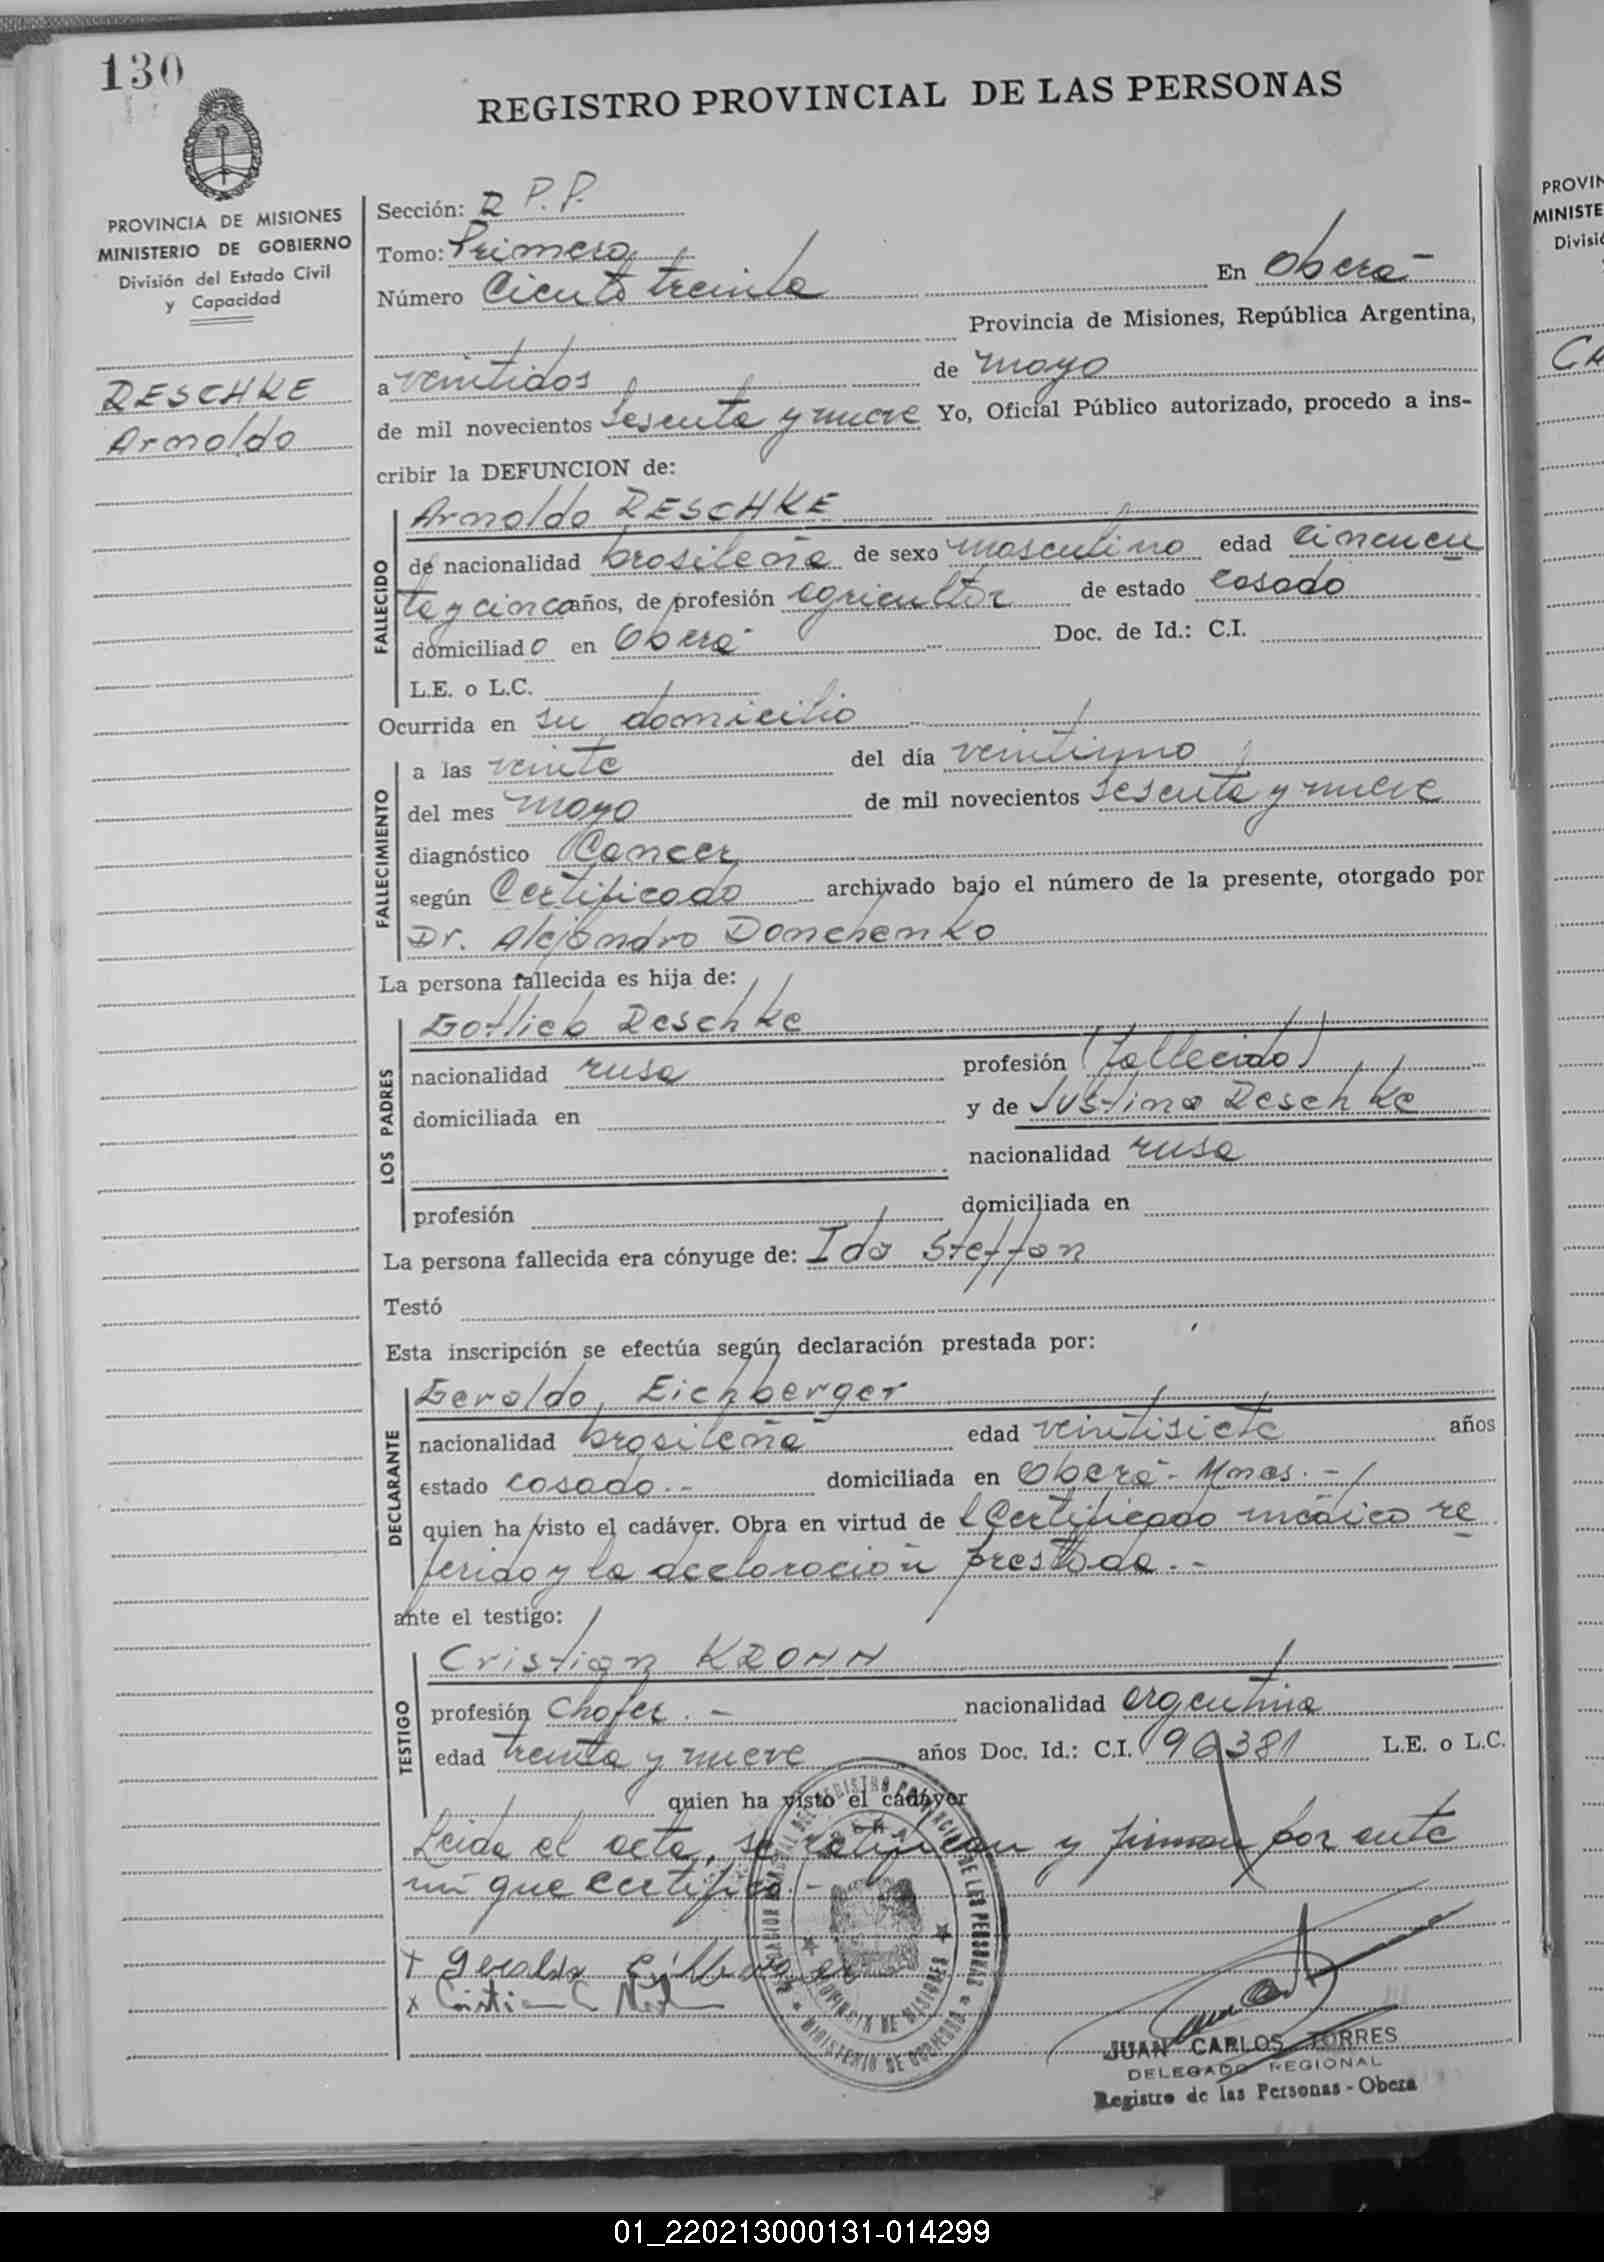 130
REGISTRO PROVINCIAL DE LAS PERSONAS
PROVINCIA DE MISIONES
MINISTERIO DE GOBIERNO
División del Estado Civil
y Capacidad
RESCHKE
Arnoldo
Sección: R P.P.
Tomo: Primero
Número Ciento treinta En Oberá
Provincia de Misiones, República Argentina,
a veintidos de mayo
de mil novecientos sesenta y nueve Yo, Oficial Público autorizado, procedo a ins-
cribir la DEFUNCION de:
Arnoldo RESCHKE
FALLECIDO
de nacionalidad brasileña de sexo masculino edad cincuen
ta y cinco años, de profesión agricultor de estado casado
domiciliado en Oberá Doc. de Id.: C.I.
L.E. o L.C.
Ocurrida en su domicilio
FALLECIMIENTO
a las veinte del día veintiuno
del mes mayo de mil novecientos sesenta y nueve
diagnóstico Cancer
según Certificado archivado bajo el número de la presente, otorgado por
Dr. Alejandro Donchenko
La persona fallecida es hija de:
LOS PADRES
Gotlieb Reschke
nacionalidad rusa profesión (fallecido)
domiciliada en y de Justina Reschke
nacionalidad rusa
profesión domiciliada en
La persona fallecida era cónyuge de: Ida Steffan
Testó
Esta inscripción se efectúa según declaración prestada por:
DECLARANTE
Geraldo Eichberger
nacionalidad brasileña edad veintisiete años
estado casado.- domiciliada en Oberá - Mnes. -
quien ha visto el cadáver. Obra en virtud de l Certificado médico re
ferido y la declaración prestada.-
ante el testigo:
TESTIGO
Cristian KROHN
profesión Chofer. - nacionalidad argentina
edad treinta y nueve años Doc. Id.: C.I. 96381 L.E. o L.C.
quien ha visto el cadáver
Leida el acta, se ratifican y firman por ante
mi que certifico.-
x Geraldo
x Cristian
MINISTERIO DE GOBIERNO
PROVINCIA DE MISIONES
JUAN CARLOS TORRES
DELEGADO REGIONAL
Registro de las Personas - Obera
PROVIN
MINISTE
Divisió
01_220213000131-014299